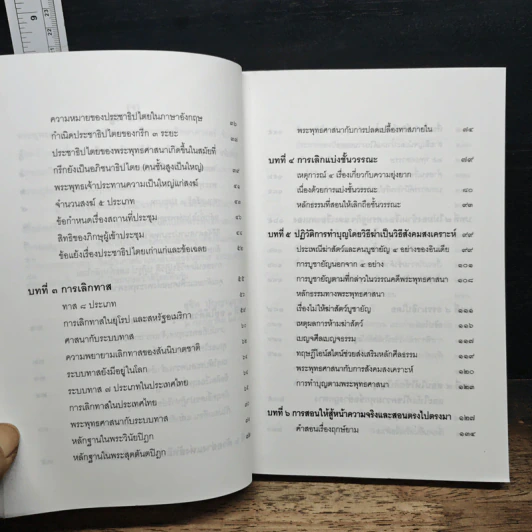 ความหมายของประชาธิปไตยในภาษาอังกฤษ ๓๖
กำเนิดประชาธิปไตยของกรีก ๓ ระยะ
ประชาธิปไตยของพระพุทธศาสนาเกิดขึ้นในสมัยที่
กรีกยังเป็นอภิชนาธิปไตย (คนชั้นสูงเป็นใหญ่)
พระพุทธเจ้าประทานความเป็นใหญ่แก่สงฆ์
จำนวนสงฆ์ ๕ ประเภท
ข้อกำหนดเรื่องสถานที่ประชุม
สิทธิของภิกษุผู้เข้าประชุม
ข้อแย้งเรื่องประชาธิปไตยเก่าแก่และข้อเฉลย
บทที่ ๓ การเลิกทาส
ทาส ๘ ประเภท
การเลิกทาสในยุโรป และสหรัฐอเมริกา
ศาสนากับระบบทาส
ความพยายามเลิกทาสของสันนิบาตชาติ
ระบบทาสยังมีอยู่ในโลก
ระบบทาส ๗ ประเภทในประเทศไทย
การเลิกทาสในประเทศไทย
พระพุทธศาสนากับระบบทาส
หลักฐานในพระวินัยปิฎก
หลักฐานในพระสุตตันตปิฎก
พระพุทธศาสนากับการปลดเปลื้องทาสภายใน ๗๔
บทที่ ๔ การเลิกแบ่งชั้นวรรณะ ๗๙
เหตุการณ์ ๔ เรื่องเกี่ยวกับความยุ่งยาก
เนื่องด้วยการแบ่งชั้นวรรณะ ๘๐
หลักธรรมที่สอนให้เลิกถือชั้นวรรณะ
บทที่ ๕ ปฏิวัติการทำบุญโดยวิธีฆ่าเป็นวิธีสังคมสงเคราะห์ ๙๙
ประเพณีฆ่าสัตว์และคนบูชายัญ ๔ อย่างของอินเดีย ๙๙
การบูชายัญนอกจาก ๔ อย่าง ๑๐๑
การบูชายัญตามที่กล่าวในวรรณคดีพระพุทธศาสนา ๑๐๘
หลักธรรมทางพระพุทธศาสนา
เรื่องไม่ให้ฆ่าสัตว์บูชายัญ ๑๑๑
เหตุผลการห้ามฆ่าสัตว์
เบญจศีลเบญจธรรม ๑๑๗
ทฤษฎีไอน์สไตน์ช่วยส่งเสริมหลักศีลธรรม ๑๑๙
พระพุทธศาสนากับการสังคมสงเคราะห์ ๑๒๐
การทำบุญตามพระพุทธศาสนา ๑๒๓
บทที่ ๖ การสอนให้สู้หน้าความจริงและสอนตรงไปตรงมา ๑๒๗
คำสอนเรื่องฤกษ์ยาม ๑๓๔